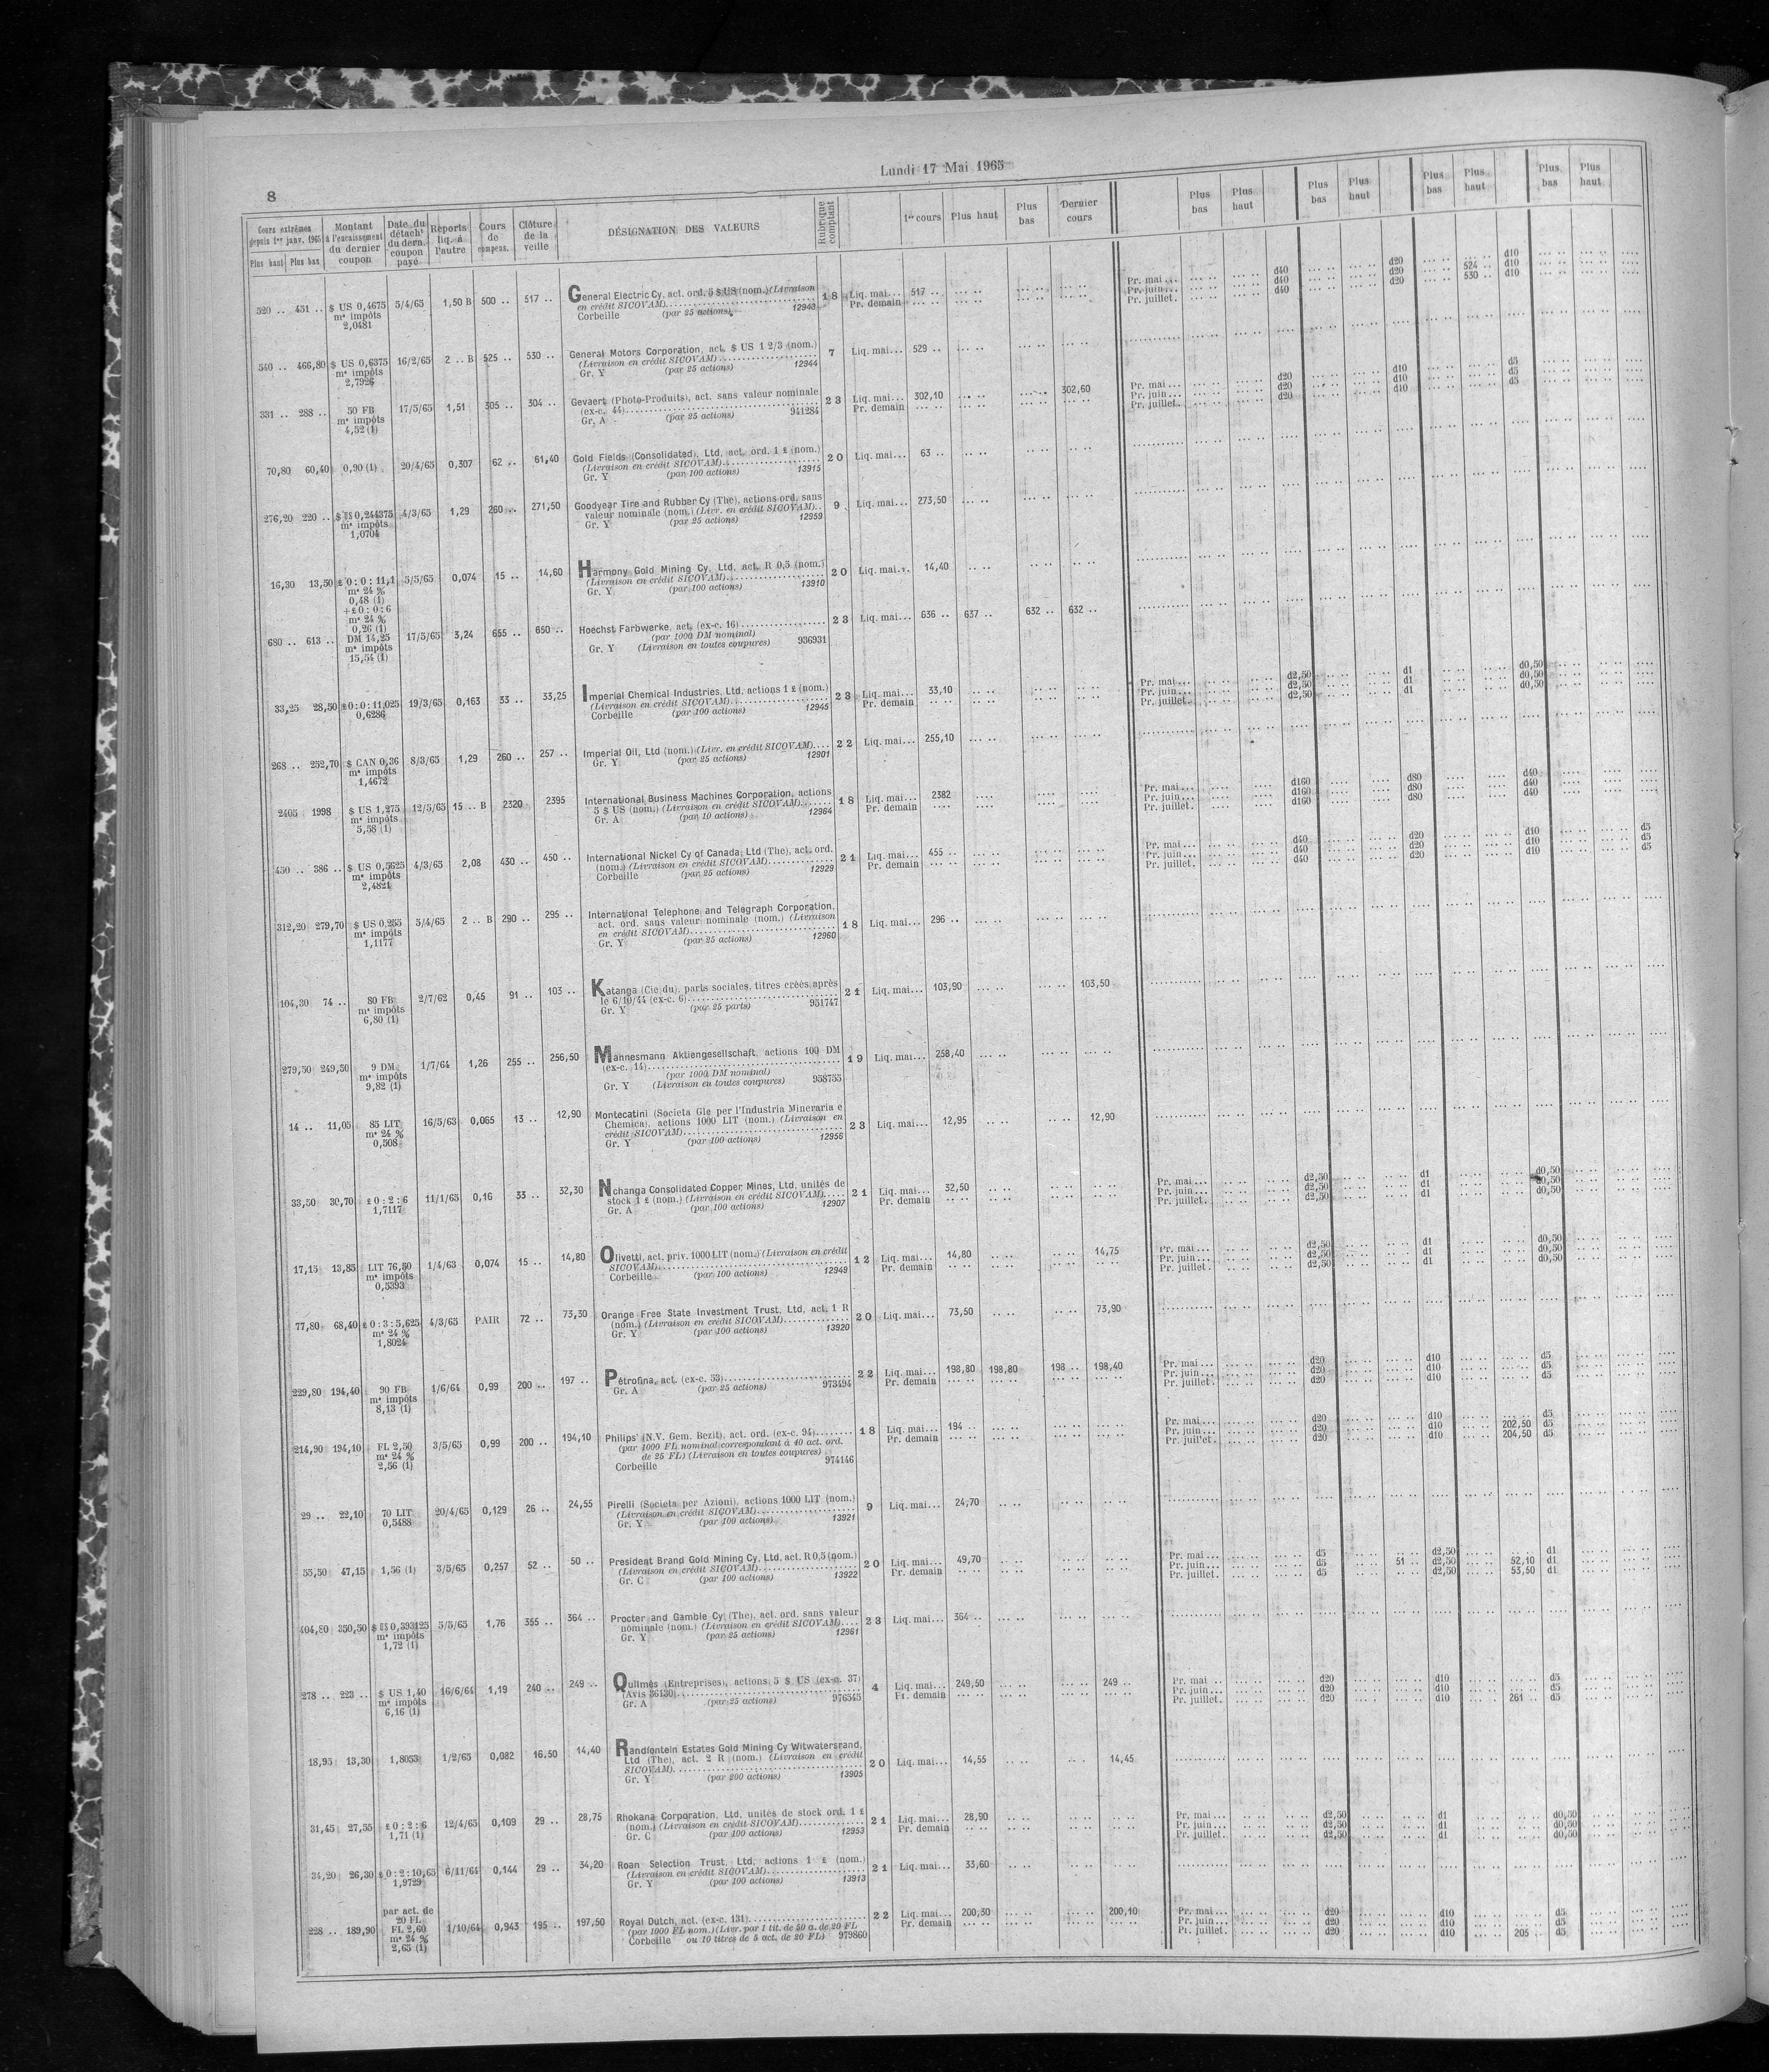 Lundi 17 Mai 1965
8
Cours extrêmes depuis 1er janv. 1965 Plus haut Plus bas
Montant à l'encaissement du dernier coupon
Date du détacht du dern. coupon payé
Reports liq. à l'autre
Cours de compens.
Clôture de la veille
DÉSIGNATION DES VALEURS
Rubrique comptant
1er cours Plus haut Plus bas Dernier cours
Plus bas Plus haut Plus bas Plus haut Plus bas Plus haut Plus bas Plus haut
520 .. 451 .. $ US 0,4675 5/4/65 1,50 B 500 .. 517 .. General Electric Cy, act. ord. 5 $ US (nom.) (Livraison 18 Liq. mai... 517 ..
m s impôts en crédit SICOVAM) 12943 Pr. demain
2,0481 Corbeille (par 25 actions)
Pr. mai ... d40 d20 d10
Pr. juin ... d40 d20 524 .. d10
Pr. juillet. d40 d20 530 .. d10
540 .. 466,80 $ US 0,6375 16/2/65 2 .. B 525 .. 530 .. General Motors Corporation, act. $ US 1 2/3 (nom.) 7 Liq. mai... 529 ..
m s impôts (Livraison en crédit SICOVAM) 12944
2,7926 Gr. Y (par 25 actions)
331 .. 288 .. 50 FB 17/5/65 1,51 305 .. 304 .. Gevaert (Photo-Produits), act. sans valeur nominale 23 Liq. mai... 302,10 302,60
m s impôts (ex-c. 44) 941284 Pr. demain
4,52 (1) Gr. A (par 25 actions)
Pr. mai ... d20 d10 d5
Pr. juin ... d20 d10 d5
Pr. juillet. d20 d10 d5
70,80 60,40 0,90 (1) 20/4/65 0,307 62 .. 61,40 Gold Fields (Consolidated), Ltd, act. ord. 1 £ (nom.) 20 Liq. mai... 63 ..
(Livraison en crédit SICOVAM) 13915
Gr. Y (par 100 actions)
276,20 220 .. $ US 0,244375 4/3/65 1,29 260 .. 271,50 Goodyear Tire and Rubber Cy (The), actions ord. sans 9 Liq. mai... 273,50
m s impôts valeur nominale (nom.) (Livr. en crédit SICOVAM) 12959
1,0704 Gr. Y (par 25 actions)
16,30 13,50 £ 0 : 0 : 11,1 5/5/65 0,074 15 .. 14,60 Harmony Gold Mining Cy, Ltd, act. R 0,5 (nom.) 20 Liq. mai... 14,40
m s 24 % (Livraison en crédit SICOVAM) 13910
0,48 (1) Gr. Y (par 100 actions)
+ £ 0 : 0 : 6
m s 24 %
0,26 (1)
680 .. 613 .. DM 14,25 17/5/65 3,24 655 .. 650 .. Hoechst Farbwerke, act. (ex-c. 16) 23 Liq. mai... 636 .. 637 .. 632 .. 632 ..
m s impôts (par 1000 DM nominal) 936931
15,54 (1) Gr. Y (Livraison en toutes coupures)
33,25 28,50 £ 0 : 0 : 11,025 19/3/65 0,163 33 .. 33,25 Imperial Chemical Industries, Ltd, actions 1 £ (nom.) 23 Liq. mai... 33,10
0,6286 (Livraison en crédit SICOVAM) 12945 Pr. demain
Corbeille (par 100 actions)
Pr. mai ... d2,50 d1 d0,50
Pr. juin ... d2,50 d1 d0,50
Pr. juillet. d2,50 d1 d0,50
268 .. 252,70 $ CAN 0,36 8/3/65 1,29 260 .. 257 .. Imperial Oil, Ltd (nom.) (Livr. en crédit SICOVAM) 22 Liq. mai... 255,10
m s impôts Gr. Y (par 25 actions) 12901
1,4672
2405 1998 $ US 1,275 12/5/65 15 .. B 2320 2395 International Business Machines Corporation, actions 18 Liq. mai... 2382
m s impôts 5 $ US (nom.) (Livraison en crédit SICOVAM) 12964 Pr. demain
5,58 (1) Gr. A (par 10 actions)
Pr. mai... d160 d80 d40
Pr. juin ... d160 d80 d40
Pr. juillet. d160 d80 d40
450 .. 386 .. $ US 0,5625 4/3/65 2,08 430 .. 450 .. International Nickel Cy of Canada, Ltd (The), act. ord. 21 Liq. mai... 455 ..
m s impôts (nom.) (Livraison en crédit SICOVAM) 12929 Pr. demain
2,4821 Corbeille (par 25 actions)
Pr. mai... d40 d20 d10 d5
Pr. juin ... d40 d20 d10 d5
Pr. juillet. d40 d20 d10 d5
312,20 279,70 $ US 0,255 5/4/65 2 .. B 290 .. 295 .. International Telephone and Telegraph Corporation, 18 Liq. mai... 296 ..
m s impôts act. ord. sans valeur nominale (nom.) (Livraison
1,1177 en crédit SICOVAM) 12960
Gr. Y (par 25 actions)
104,30 74 .. 80 FB 2/7/62 0,45 91 .. 103 .. Katanga (Cie du), parts sociales, titres créés après 21 Liq. mai... 103,90 103,50
m s impôts le 6/10/44 (ex-c. 6) 951747
6,80 (1) Gr. Y (par 25 parts)
279,50 249,50 9 DM 1/7/64 1,26 255 .. 256,50 Mannesmann Aktiengesellschaft, actions 100 DM 19 Liq. mai... 258,40
m s impôts (ex-c. 14)
9,82 (1) (par 1000 DM nominal) 958755
Gr. Y (Livraison en toutes coupures)
14 .. 11,05 85 LIT 16/5/63 0,065 13 .. 12,90 Montecatini (Societa Gle per l'Industria Mineraria e 23 Liq. mai... 12,95 12,90
m s 24 % Chemica), actions 1000 LIT (nom.) (Livraison en
0,508 crédit SICOVAM) 12956
Gr. Y (par 100 actions)
33,50 30,70 £ 0 : 2 : 6 11/1/65 0,16 33 .. 32,30 Nchanga Consolidated Copper Mines, Ltd, unités de 21 Liq. mai... 32,50
1,7117 stock 1 £ (nom.) (Livraison en crédit SICOVAM) 12907 Pr. demain
Gr. A (par 100 actions)
Pr. mai... d2,50 d1 d0,50
Pr. juin ... d2,50 d1 d0,50
Pr. juillet. d2,50 d1 d0,50
17,15 13,85 LIT 76,50 1/4/63 0,074 15 .. 14,80 Olivetti, act. priv. 1000 LIT (nom.) (Livraison en crédit 12 Liq. mai... 14,80 14,75
m s impôts SICOVAM) 12949 Pr. demain
0,5393 Corbeille (par 100 actions)
Pr. mai... d2,50 d1 d0,50
Pr. juin ... d2,50 d1 d0,50
Pr. juillet. d2,50 d1 d0,50
77,80 68,40 £ 0 : 3 : 5,625 4/3/65 PAIR 72 .. 73,30 Orange Free State Investment Trust, Ltd, act. 1 R 20 Liq. mai... 73,50 73,90
m s 24 % (nom.) (Livraison en crédit SICOVAM) 13920
1,8024 Gr. Y (par 100 actions)
229,80 194,40 90 FB 1/6/64 0,99 200 .. 197 .. Pétrofina, act. (ex-c. 53) 22 Liq. mai... 198,80 198,80 198 .. 198,40
m s impôts Gr. A (par 25 actions) 973494 Pr. demain
8,13 (1)
Pr. mai... d20 d10 d5
Pr. juin ... d20 d10 d5
Pr. juillet. d20 d10 d5
214,90 194,10 FL 2,50 3/5/65 0,99 200 .. 194,10 Philips' (N.V. Gem. Bezit), act. ord. (ex-c. 94) 18 Liq. mai... 194 ..
m s 24 % (par 1000 FL nominal correspondant à 40 act. ord. Pr. demain
2,56 (1) de 25 FL) (Livraison en toutes coupures) 974146
Corbeille
Pr. mai... d20 d10 d5
Pr. juin ... d20 d10 202,50 d5
Pr. juillet. d20 d10 204,50 d5
29 .. 22,10 70 LIT 20/4/65 0,129 26 .. 24,55 Pirelli (Societa per Azioni), actions 1000 LIT (nom.) 9 Liq. mai... 24,70
0,5488 (Livraison en crédit SICOVAM) 13921
Gr. Y (par 100 actions)
55,50 47,15 1,56 (1) 3/5/65 0,257 52 .. 50 .. President Brand Gold Mining Cy, Ltd, act. R 0,5 (nom.) 20 Liq. mai... 49,70
(Livraison en crédit SICOVAM) 13922 Pr. demain
Gr. C (par 100 actions)
Pr. mai... d5 d2,50 d1
Pr. juin ... d5 51 .. d2,50 52,10 d1
Pr. juillet. d5 d2,50 53,50 d1
404,80 350,50 $ US 0,393125 5/5/65 1,76 355 .. 364 .. Procter and Gamble Cy (The), act. ord. sans valeur 23 Liq. mai... 364 ..
m s impôts nominale (nom.) (Livraison en crédit SICOVAM) 12961
1,72 (1) Gr. Y (par 25 actions)
278 .. 223 .. $ US 1,40 16/6/64 1,19 240 .. 249 .. Quilmès (Entreprises), actions 5 $ US (ex-c. 37) 4 Liq. mai... 249,50 249 ..
m s impôts (Avis 36130) 976545 Pr. demain
6,16 (1) Gr. A (par 25 actions)
Pr. mai d20 d10 d5
Pr. juin ... d20 d10 d5
Pr. juillet. d20 d10 261 .. d5
18,95 13,30 1,8053 1/2/65 0,082 16,50 14,40 Randfontein Estates Gold Mining Cy Witwatersrand, 20 Liq. mai... 14,55 14,45
Ltd (The), act. 2 R (nom.) (Livraison en crédit
SICOVAM) 13905
Gr. Y (par 200 actions)
31,45 27,55 £ 0 : 2 : 6 12/4/65 0,109 29 .. 28,75 Rhokana Corporation, Ltd, unités de stock ord. 1 £ 21 Liq. mai... 28,90
1,71 (1) (nom.) (Livraison en crédit SICOVAM) 12953 Pr. demain
Gr. C (par 100 actions)
Pr. mai ... d2,50 d1 d0,50
Pr. juin ... d2,50 d1 d0,50
Pr. juillet. d2,50 d1 d0,50
34,20 26,30 £ 0 : 2 : 10,65 6/11/64 0,144 29 .. 34,20 Roan Selection Trust, Ltd, actions 1 £ (nom.) 21 Liq. mai... 33,60
1,9729 (Livraison en crédit SICOVAM) 13913
Gr. Y (par 100 actions)
228 .. 189,90 par act. de 20 FL 1/10/64 0,943 195 .. 197,50 Royal Dutch, act. (ex-c. 131) 22 Liq. mai... 200,30 200,10
FL 2,60 (par 1000 FL nom.) (Livr. par 1 tit. de 50 a. de 20 FL Pr. demain
m s 24 % Corbeille ou 10 titres de 5 act. de 20 FL) 979860
2,65 (1)
Pr. mai ... d20 d10 d5
Pr. juin ... d20 d10 d5
Pr. juillet. d20 d10 205 .. d5